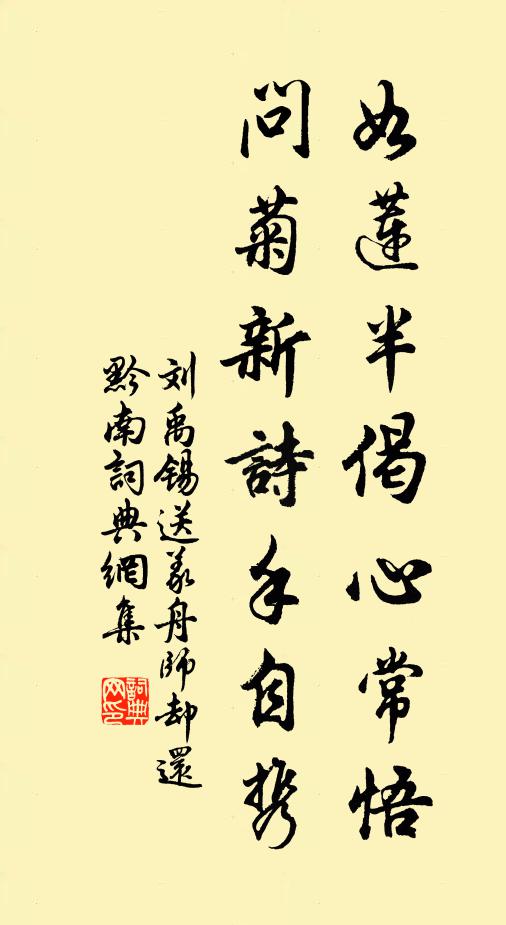 如蓮半偈心常悟
問菊新詩手自携
刘禹锡送義舟師却還
黔南詞典網集
詞典
网印